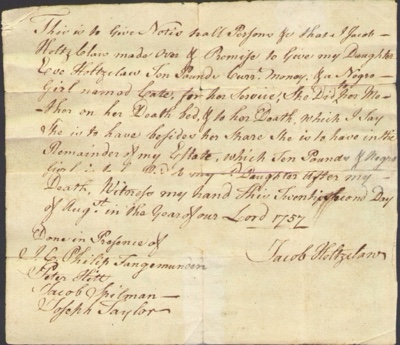 This is to Give Notis to all Persons & that I Jacob
Holtzclaw made over & Promise to Give my Daughter
Eve Holtzclaw Ten Pounds Curr.t money, & a Negro
Girl named Cate, for her Service, She Did to her Mo=
ther on her Death bed, & to her Death, which I Say
She is to have besides her Share She is to have in the
Remainder of my Estate, which Ten Pounds & Negro
Girl is to my Daughter After my
Death, Witness my hand this Twenty Second Day
of Aug.st in the Year of our Lord 1757
Done in Presence of
Jacob Holtzclaw
J. C. Philip Tangemuncin
Peter Hitt
Jacob Spilman
Joseph Taylor